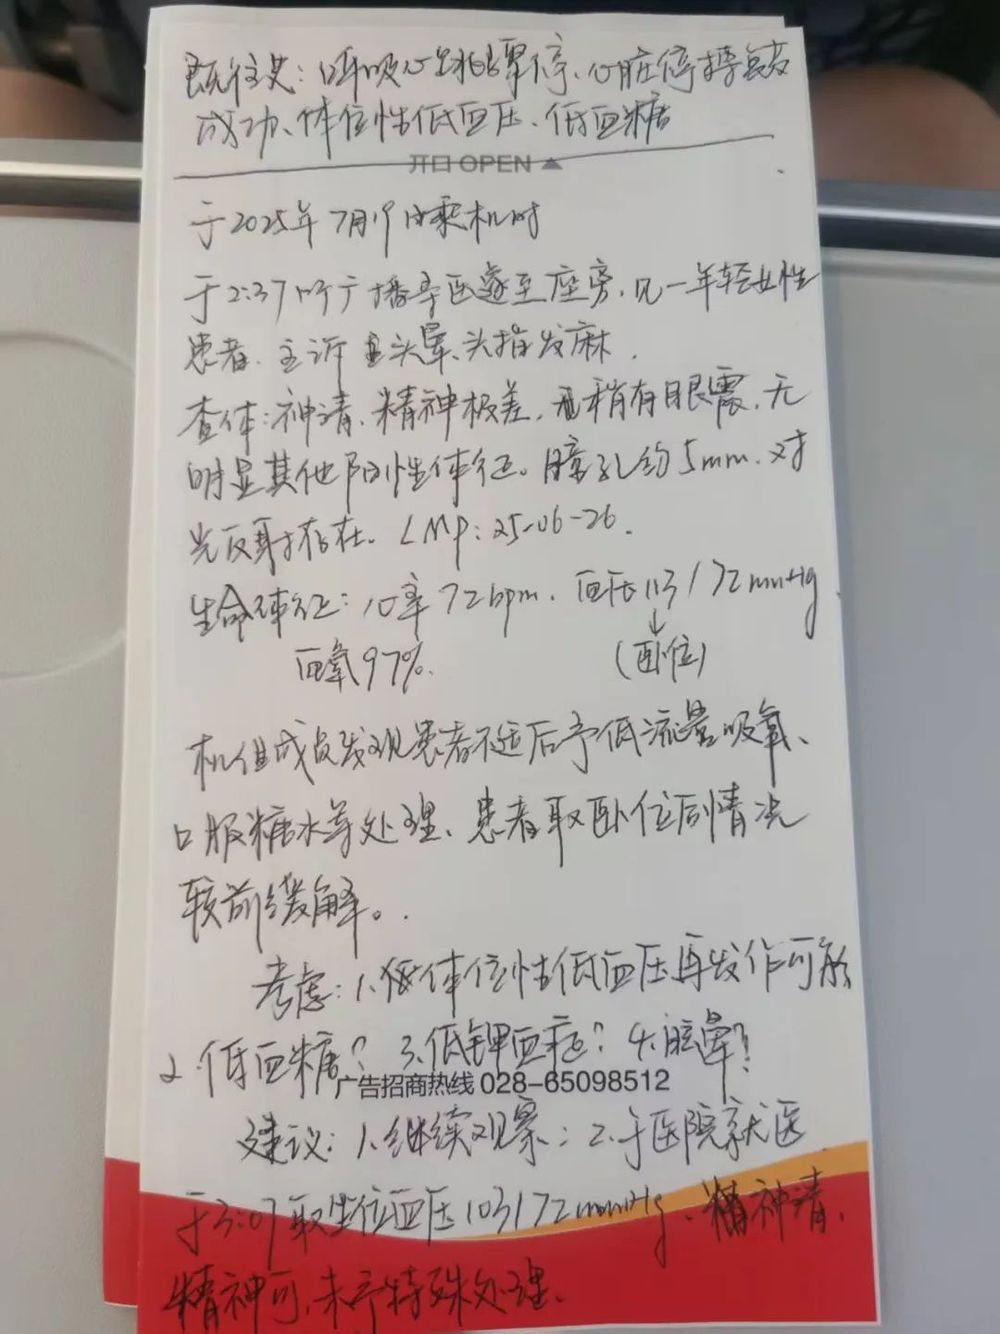 既往史：呼吸心跳骤停、心脏停搏急救
成功、体位性低血压、低血糖
开口 OPEN
于2025年7月19日乘机时
于2:37听广播寻医遂至座旁，见一年轻女性
患者，主诉头晕、头指发麻，
查体：神清，精神极差，稍有眼震，无
明显其他阳性体征。瞳孔约5mm，对
光反射存在。LMP：25-06-26.
生命体征：心率72bpm，血压113/72mmHg，
血氧97%. (卧位)
机组成员发现患者不适后予低流量吸氧、
口服糖水等处理，患者取卧位后情况
较前缓解。
考虑：1.体位性低血压再发作可能
2.低血糖？3.低钾血症？4.脑晕？
广告招商热线 028-65098512
建议：1.继续观察；2.于医院就医
于3:07取坐位血压103/72mmHg，神清，
精神可，未予特殊处理。